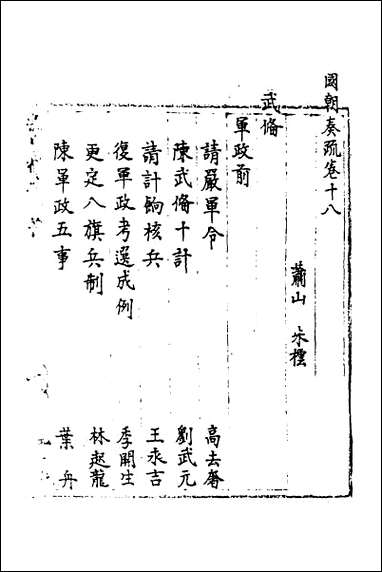 國朝奏疏卷十八
蕭山 朱樗
武備
軍政前
請嚴軍令 高去奢
陳武備十計 劉武元
請計餉核兵 王永吉
復軍政考選成例 季開生
更定八旗兵制 林起龍
陳軍政五事 葉舟